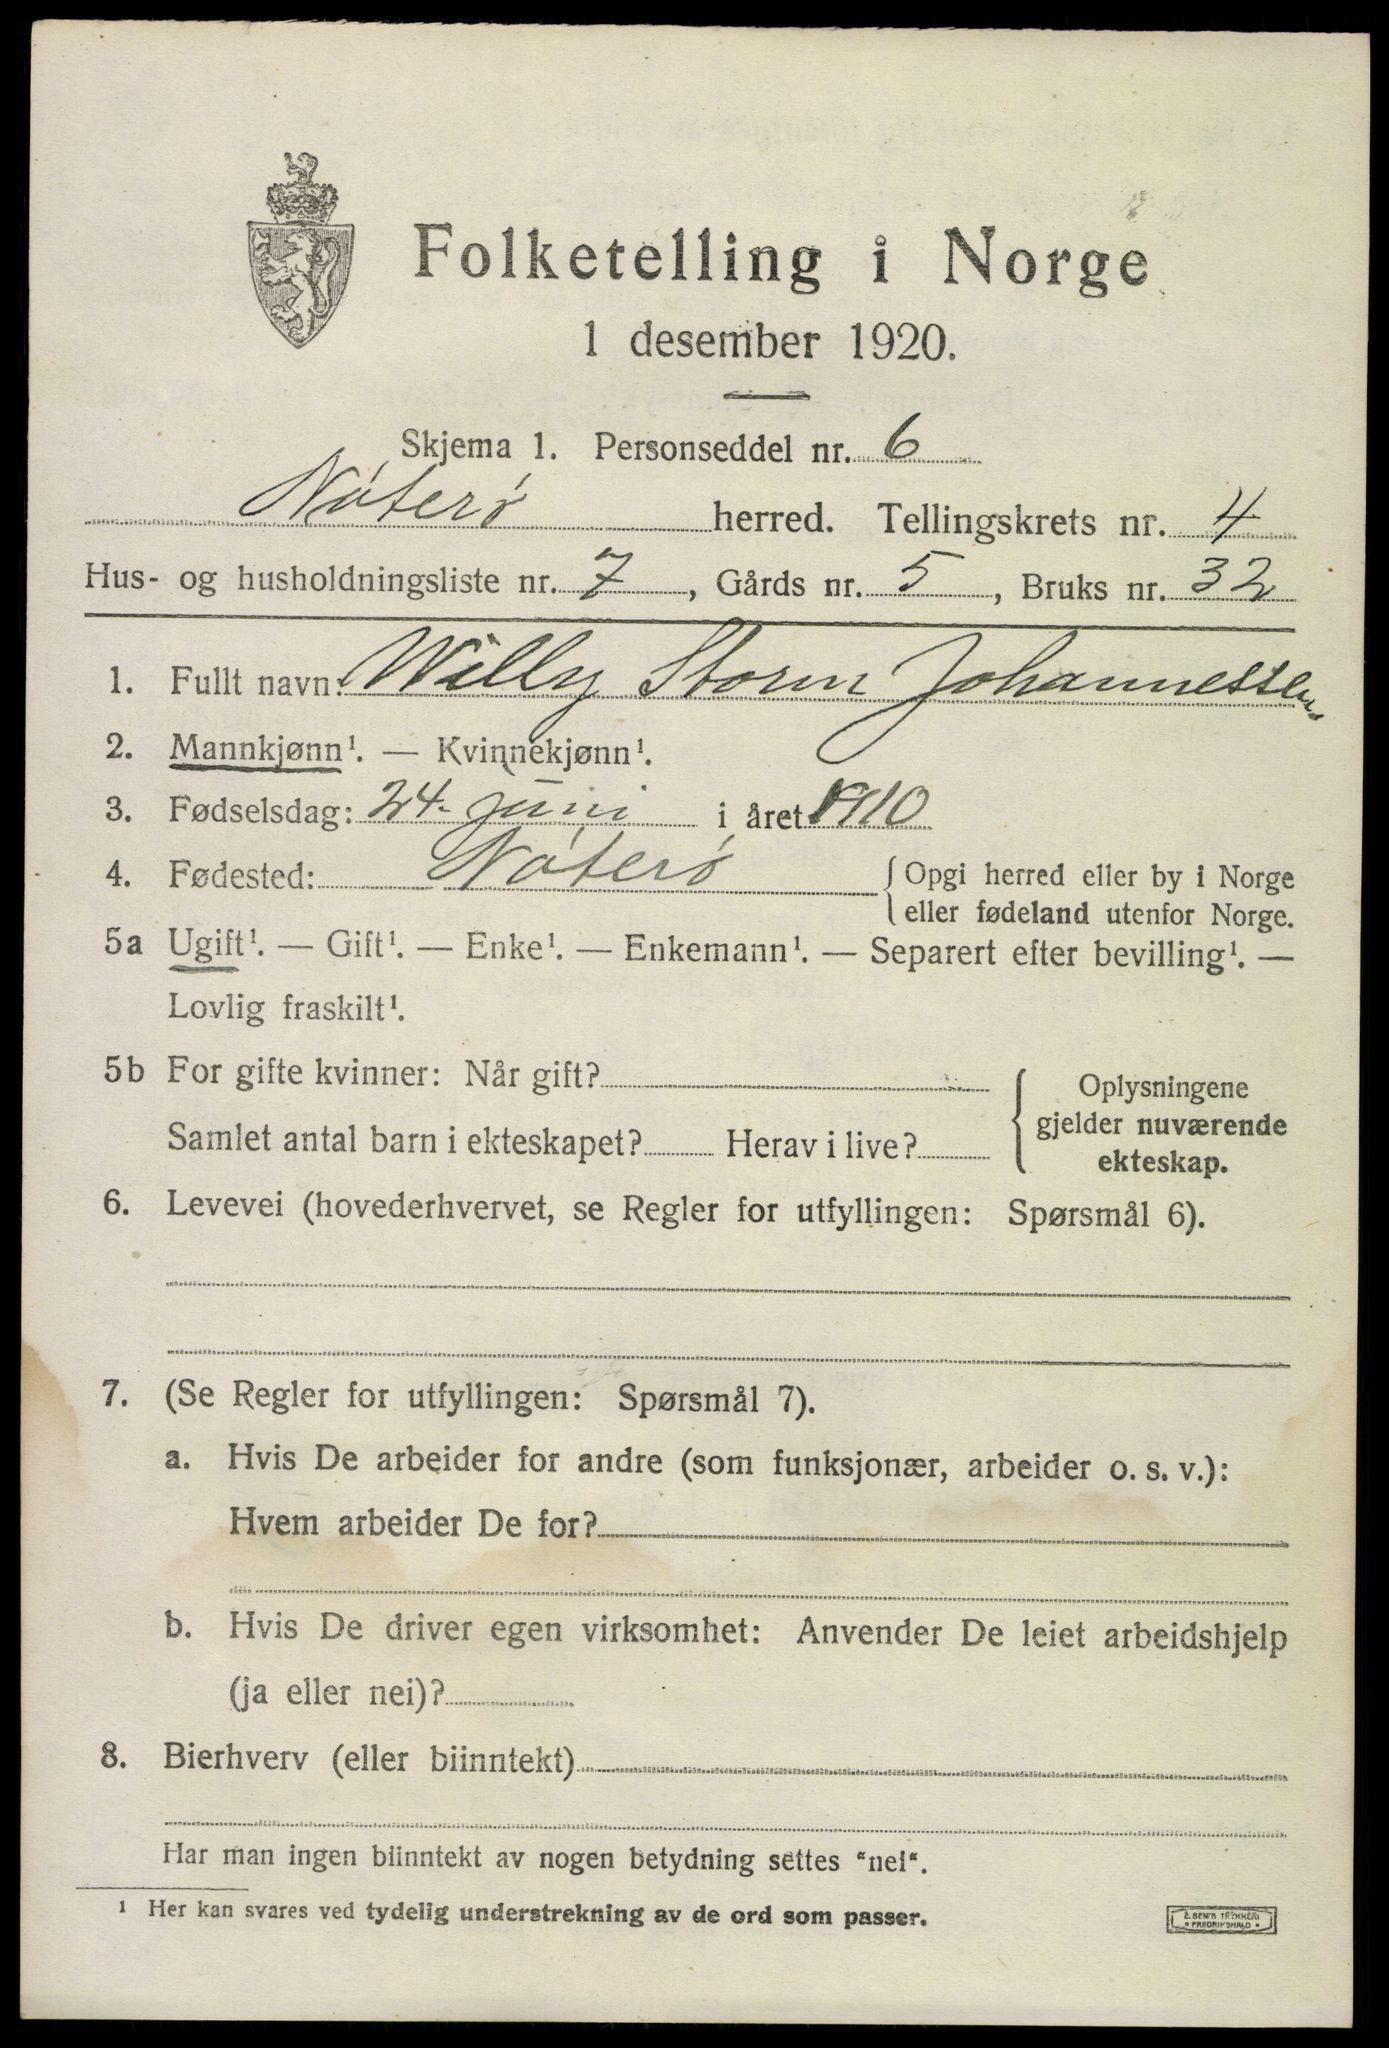 Folketelling i Norge
1 desember 1920.
Skjema 1. Personseddel nr. 6
Nøterø herred. Tellingskrets nr. 4
Hus- og husholdningsliste nr. 7, Gårds nr. 5, Bruks nr. 32
1. Fullt navn: Willy Storm Johannessen
2. Mannkjønn¹. — Kvinnekjønn¹.
3. Fødselsdag: 24. juni i året 1910
4. Fødested: Nøterø { Opgi herred eller by i Norge
eller fødeland utenfor Norge.
5a Ugift¹. — Gift¹. — Enke¹. — Enkemann¹. — Separert efter bevilling¹. —
Lovlig fraskilt¹.
5b For gifte kvinner: Når gift?
Samlet antal barn i ekteskapet? Herav i live?
{ Oplysningene
gjelder nuværende
ekteskap.
6. Levevei (hovederhvervet, se Regler for utfyllingen: Spørsmål 6).
7. (Se Regler for utfyllingen: Spørsmål 7).
a. Hvis De arbeider for andre (som funksjonær, arbeider o. s. v.):
Hvem arbeider De for?
b. Hvis De driver egen virksomhet: Anvender De leiet arbeidshjelp
(ja eller nei)?
8. Bierhverv (eller biinntekt)
Har man ingen biinntekt av nogen betydning settes "nei".
¹ Her kan svares ved tydelig understrekning av de ord som passer.
E. SEM'S TRYKKERI
* FREDRIKSHALD *